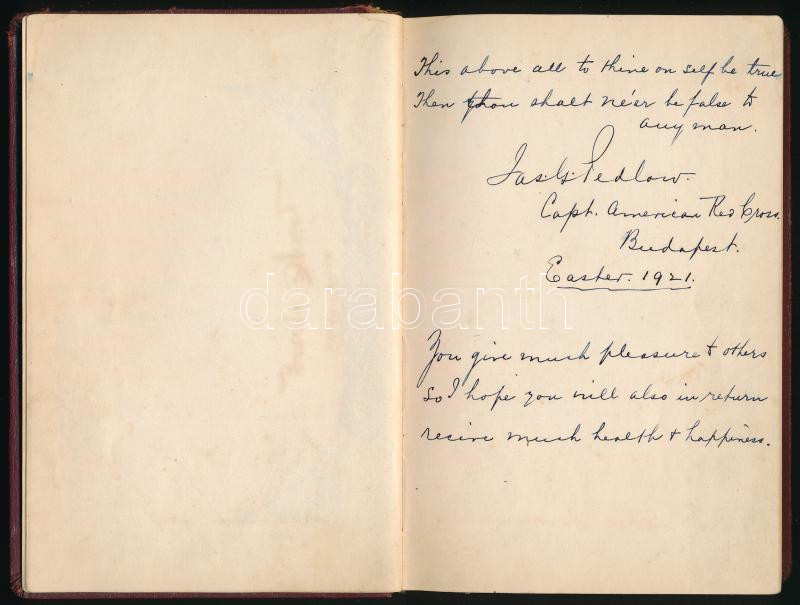 This above all to thine on self be true
Then thou shalt ne'er be false to
any man.
Jas. G. Pedlow.
Capt. American Red Cross.
Budapest.
Easter. 1921.
darabanth
You give much pleasure to others
So I hope you will also in return
recive much health & happiness.